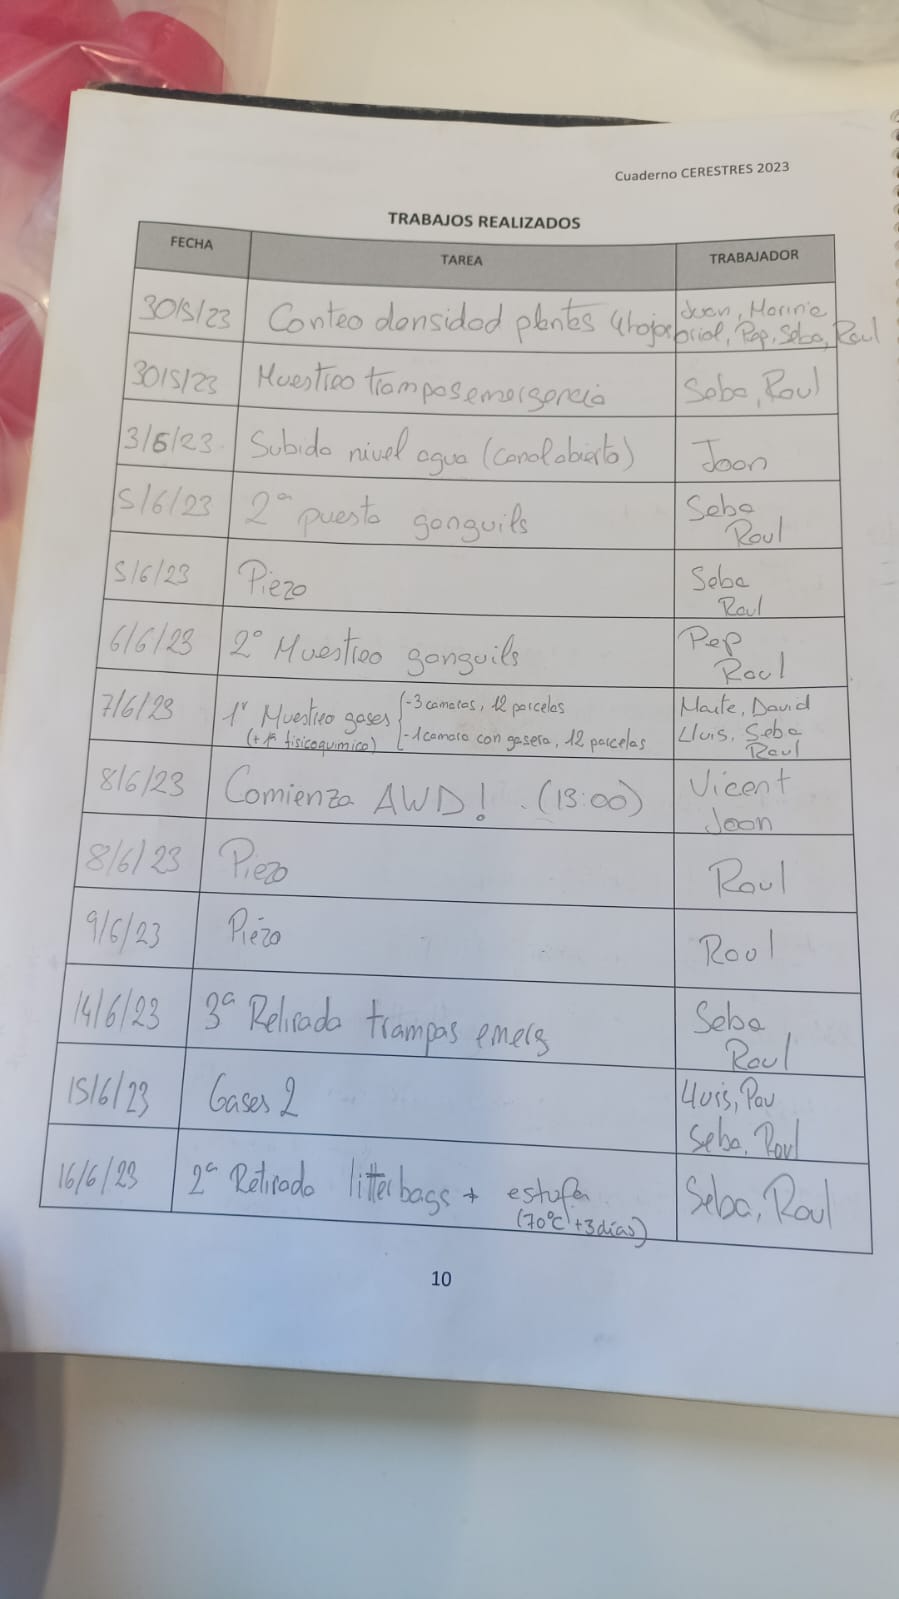 Cuaderno CERESTRES 2023
TRABAJOS REALIZADOS
FECHA TAREA TRABAJADOR
30/5/23 Conteo densidad plantas 4hojas Joan, Marina
Oriol, Pep, Seba, Raul
30/5/23 Muestreo trampas emergencia Seba, Raul
3/6/23 Subida nivel agua (canal abierto) Joan
5/6/23 2ª puesta gonguils Seba
Raul
5/6/23 Piezo Seba
Raul
6/6/23 2º Muestreo gonguils Pep
Raul
7/6/23 1r Muestreo gases -3 camaras, 12 parcelas Maite, David
(+1º fisicoquimico) -1 camara con gasera, 12 parcelas Lluis, Seba
Raul
8/6/23 Comienza AWD! (13:00) Vicent
Joan
8/6/23 Piezo Raul
9/6/23 Piezo Raul
14/6/23 3ª Retirada trampas emerg Seba
Raul
15/6/23 Gases 2 Lluis, Pau
Seba, Raul
16/6/23 2ª Retirada litterbags + estufa Seba, Raul
(70ºC +3días)
10